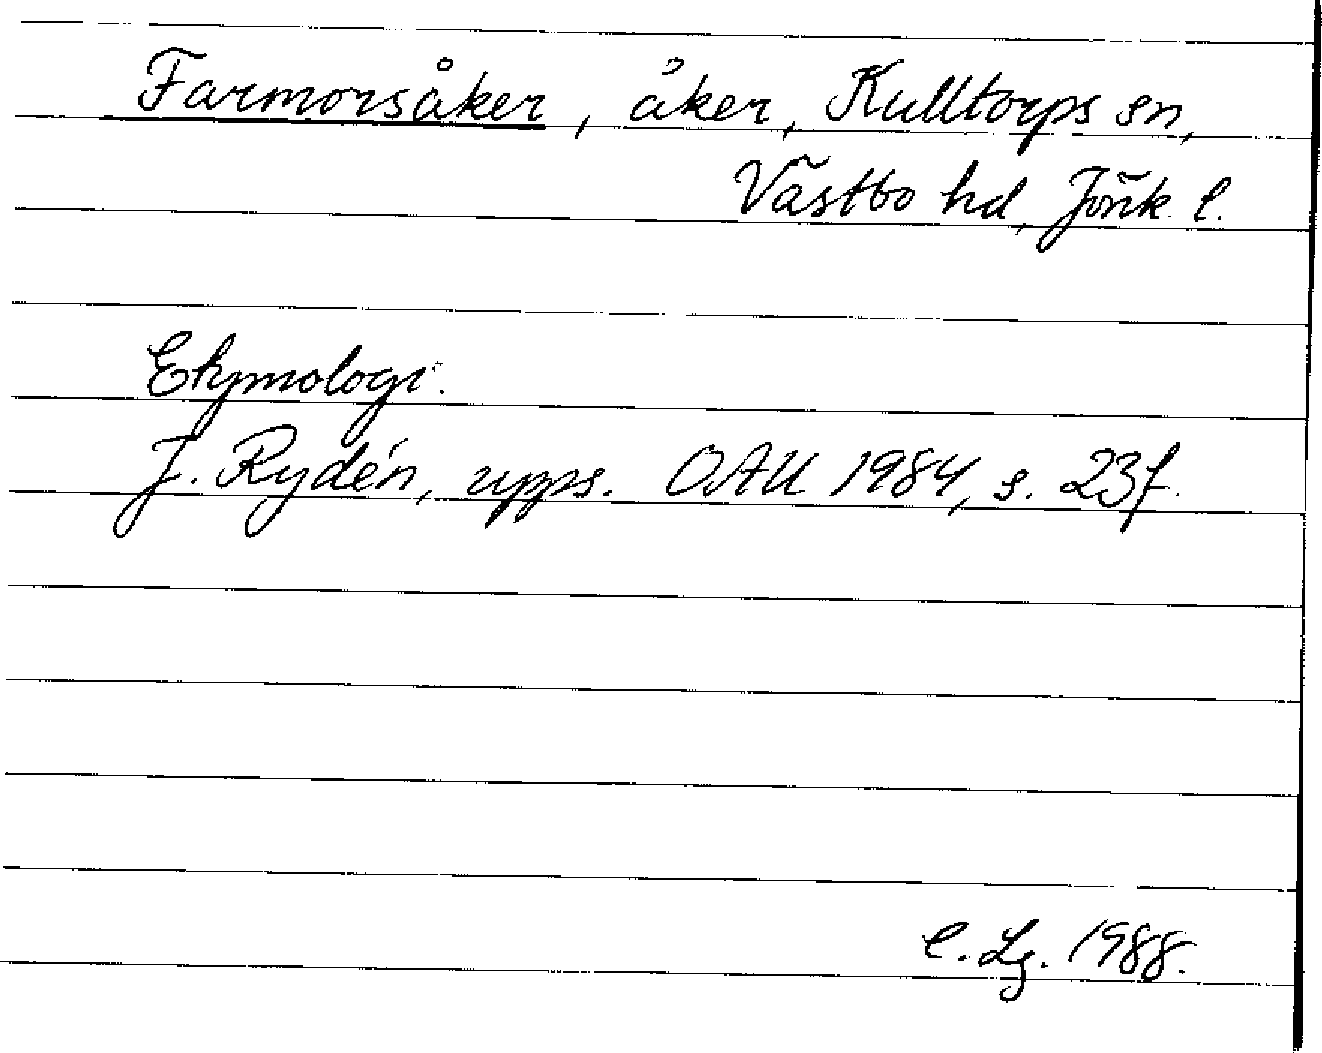 Farmorsåker, åker, Kulltorps sn,
Västbo hd, Jönk. l.
Etymologi.
J. Rydén, upps. OAU 1984, s. 23f.
C. Lg. 1988.